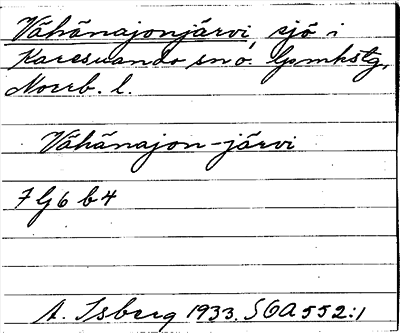 Vähänajonjärvi, sjö i
Karesuando sn o. lpmhstg,
Norrb. l.
Vähänajon-järvi
7 G 6 b 4
A. Isberg 1933. SOA 552:1